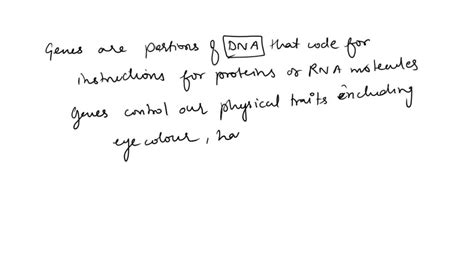 Genes are portions of DNA that code for
instructions for proteins or RNA molecules
Genes control our physical traits including
eye colour, ha